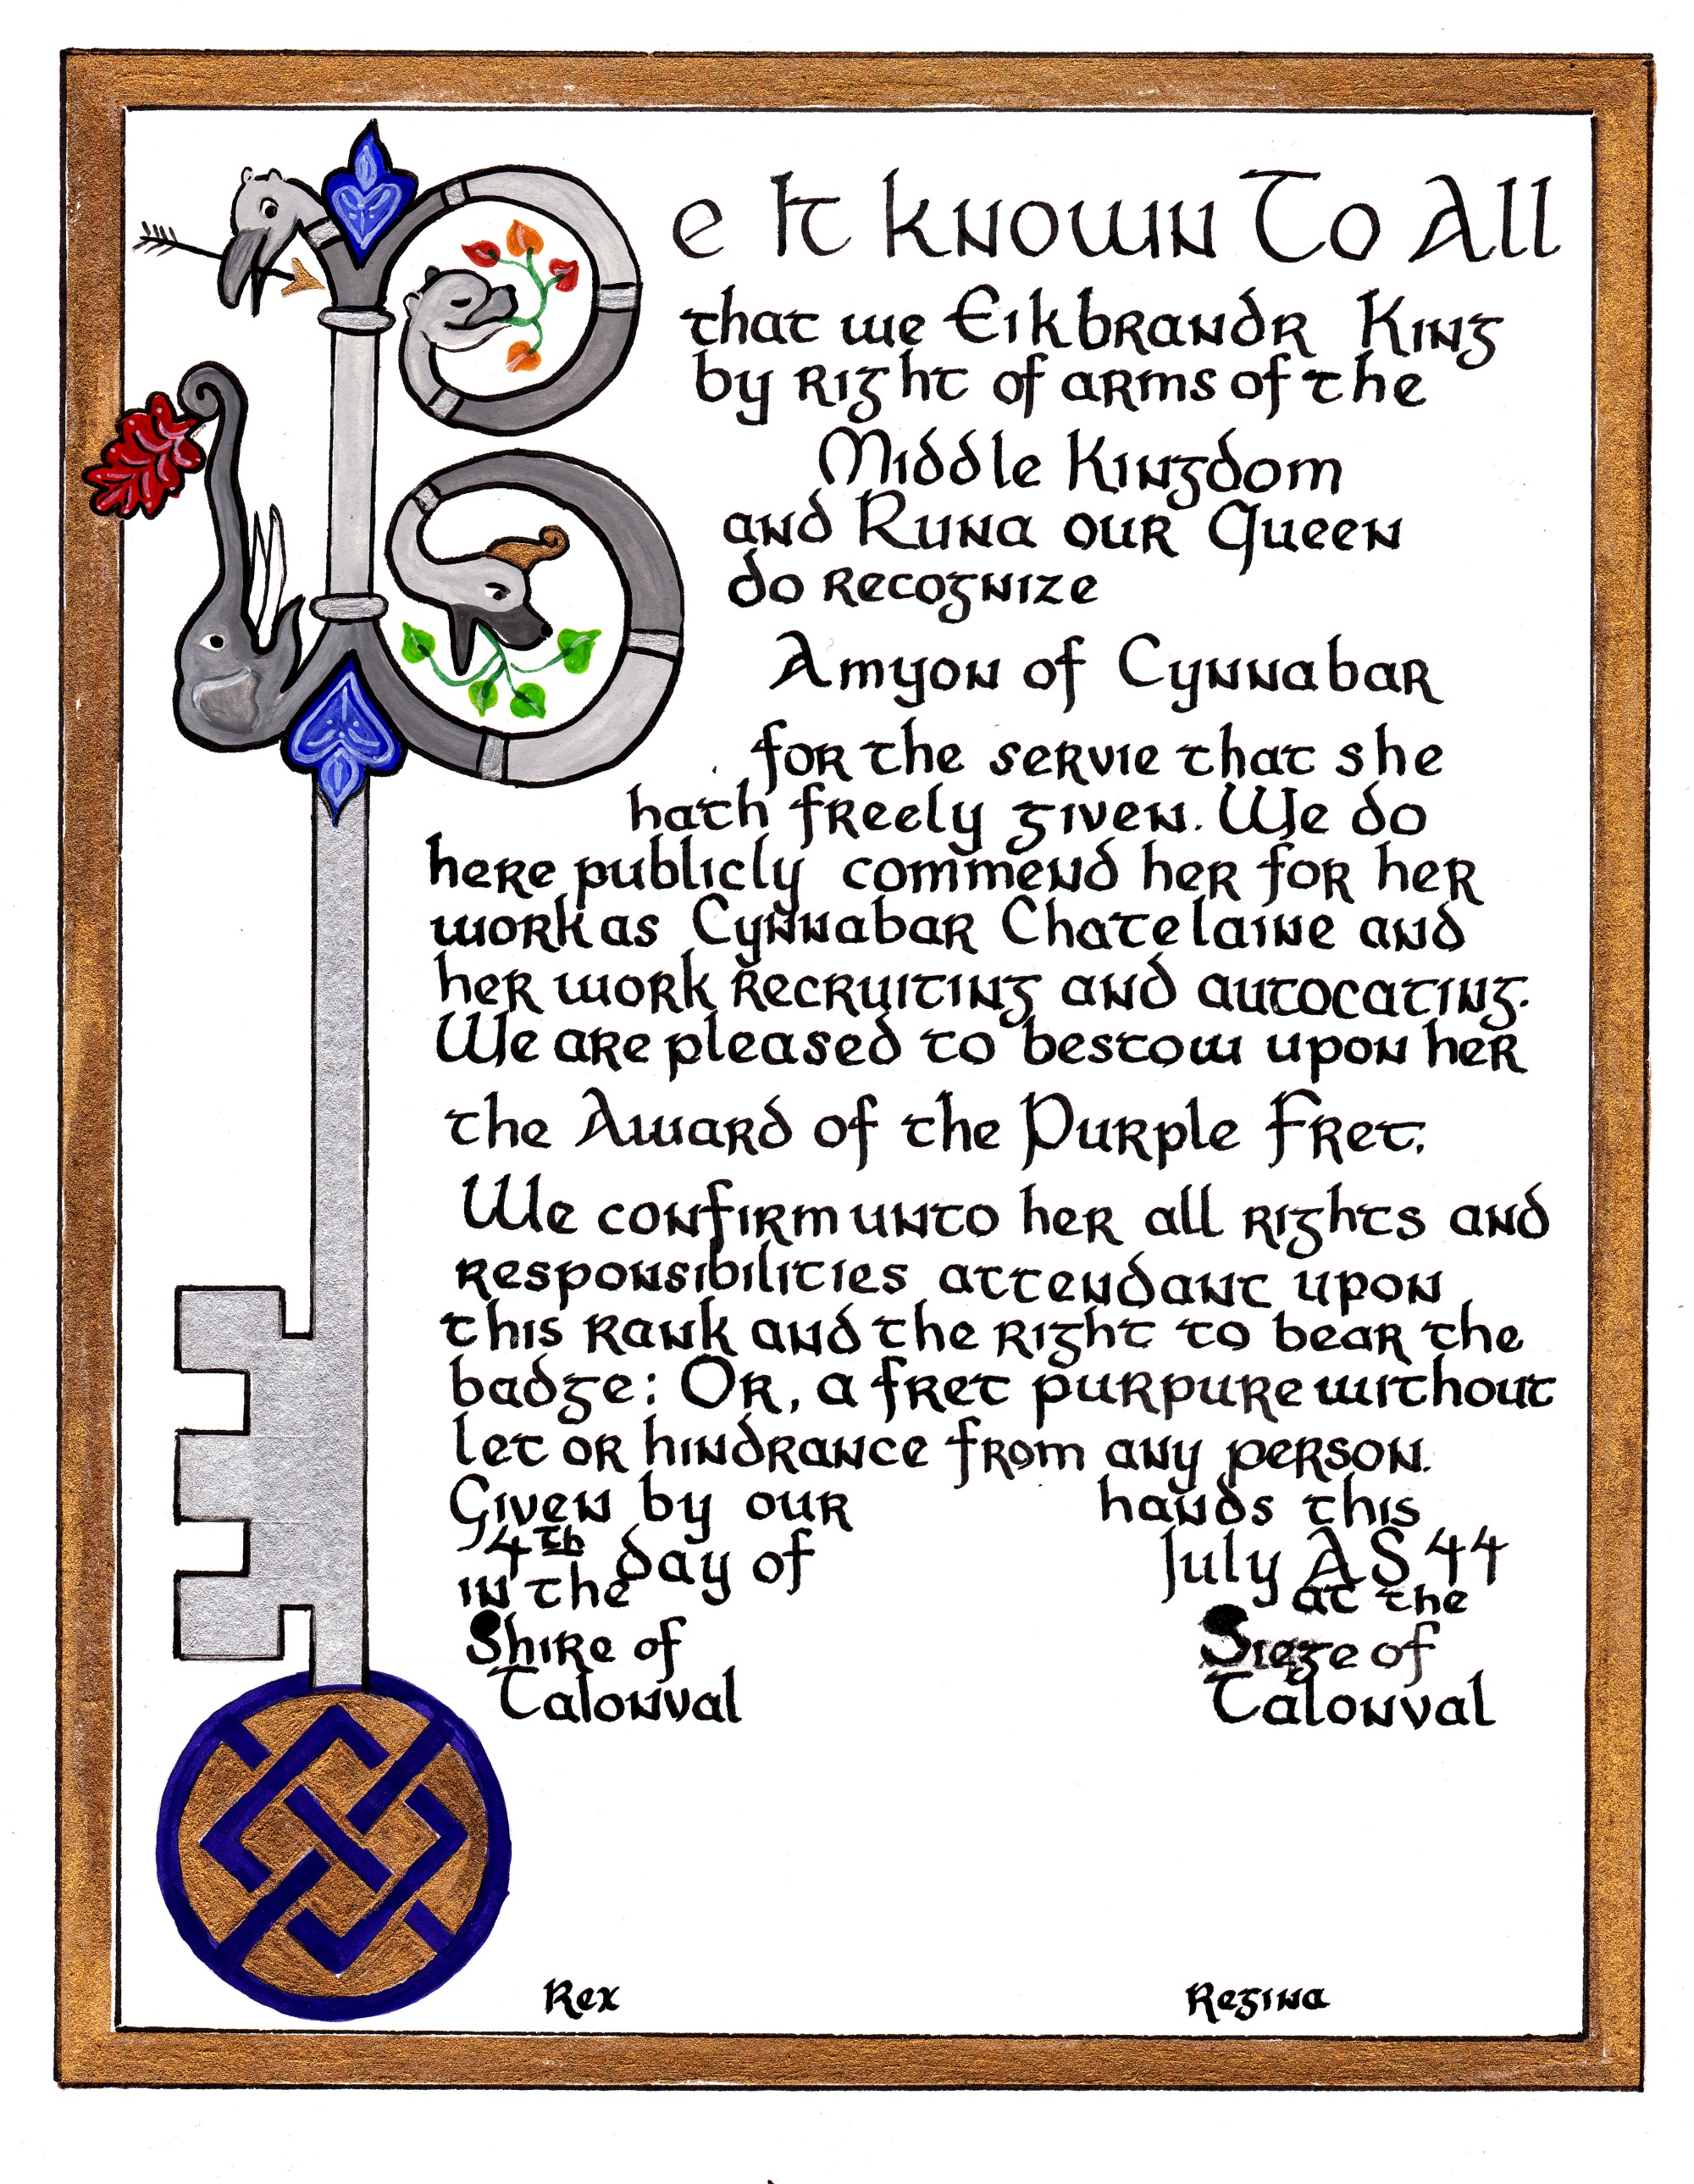 Be It Known To All
that we Eikbrandr King
by right of arms of the
Middle Kingdom
and Runa our Queen
do recognize
Amyon of Cynnabar
for the servie that she
hath freely given. We do
here publicly commend her for her
work as Cynnabar Chatelaine and
her work recruiting and autocating.
We are pleased to bestow upon her
the Award of the Purple Fret.
We confirm unto her all rights and
responsibilities attendant upon
this rank and the right to bear the
badge: Or, a fret purpure without
let or hindrance from any person.
Given by our hands this
4th day of July AS 44
in the at the
Shire of Siege of
Talonval Talonval
Rex Regina